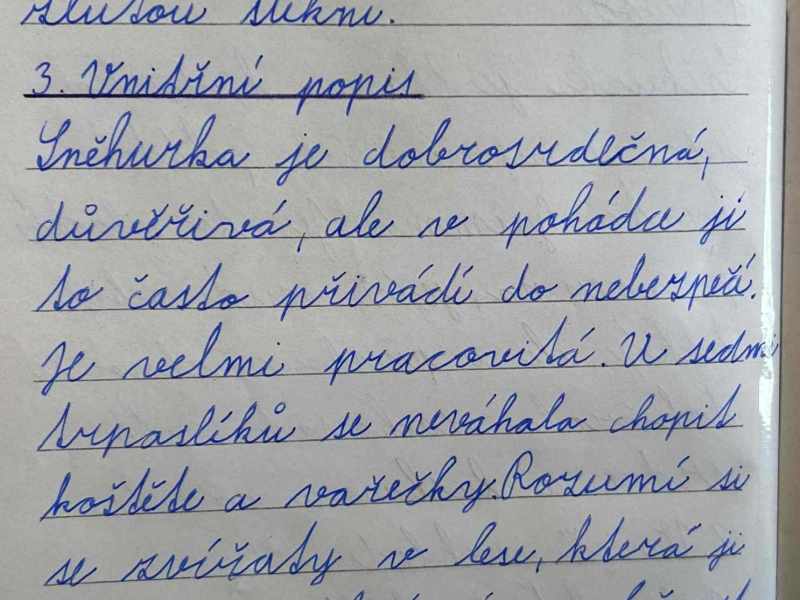 žlutou sukni.
3. Vnitřní popis
Sněhurka je dobrosrdečná,
důvěřivá, ale v pohádce ji
to často přivádí do nebezpečí.
Je velmi pracovitá. U sedmi
trpaslíků se neváhala chopit
koštěte a vařečky. Rozumí si
se zvířaty v lese, která ji